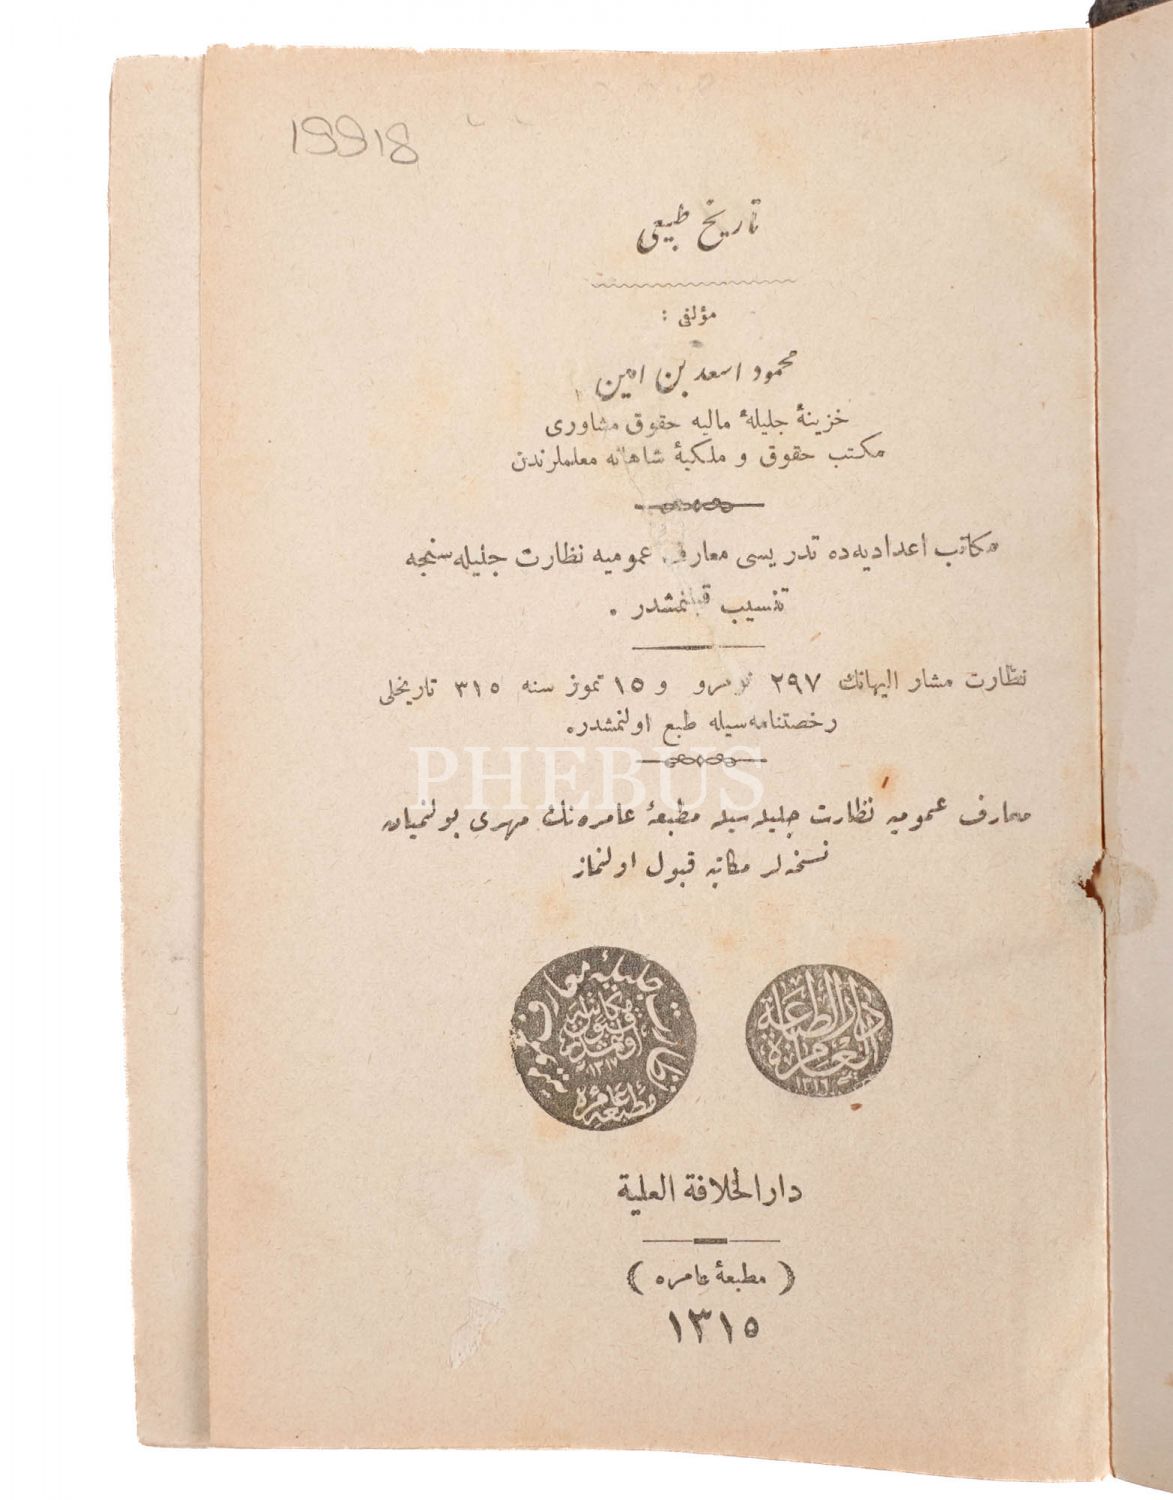 19918
تاریخ طبیعی
مؤلفی :
محمود اسعد بن امین
خزینهٔ جلیلهٔ مالیه حقوق مشاوری
مکتب حقوق و ملکیهٔ شاهانه معلملرندن
مکاتب اعدادیه‌ده تدریسی معارف عمومیه نظارت جلیله‌سنجه
تنسیب قیلنمشدر .
نظارت مشار الیهانك ۲۹۷ نومرو و ۱۵ تموز سنه ۳۱۵ تاریخلی
رخصتنامه‌سیله طبع اولنمشدر.
PHEBUS
معارف عمومیه نظارت جلیله‌سیله مطبعهٔ عامره‌نك مهری بولنمیان
نسخه‌لر مکاتبه قبول اولنماز
دار الطباعة العامرة
نظارت جلیلهٔ معارف عمومیه
مکاتبه قبول اولنمشدر
مطبعهٔ عامره
دار الخلافة العلیة
( مطبعهٔ عامره )
۱۳۱۵